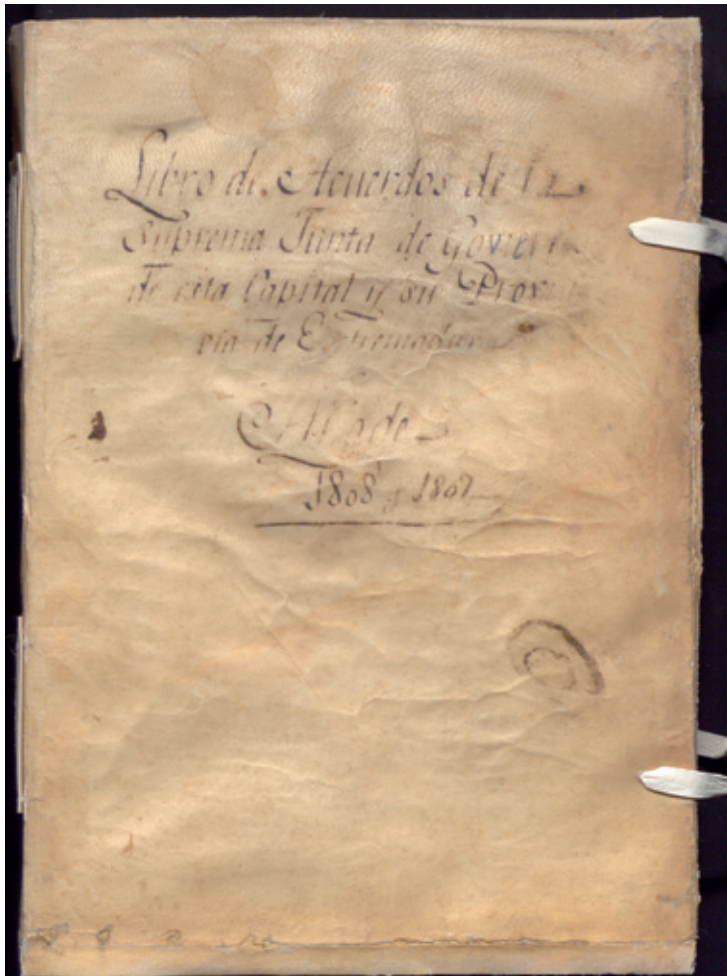 Libro de Acuerdos de la
Suprema Junta de Govier
de esta Capital y su Provin
cia de Extremadura
Año de
1808 y 1809